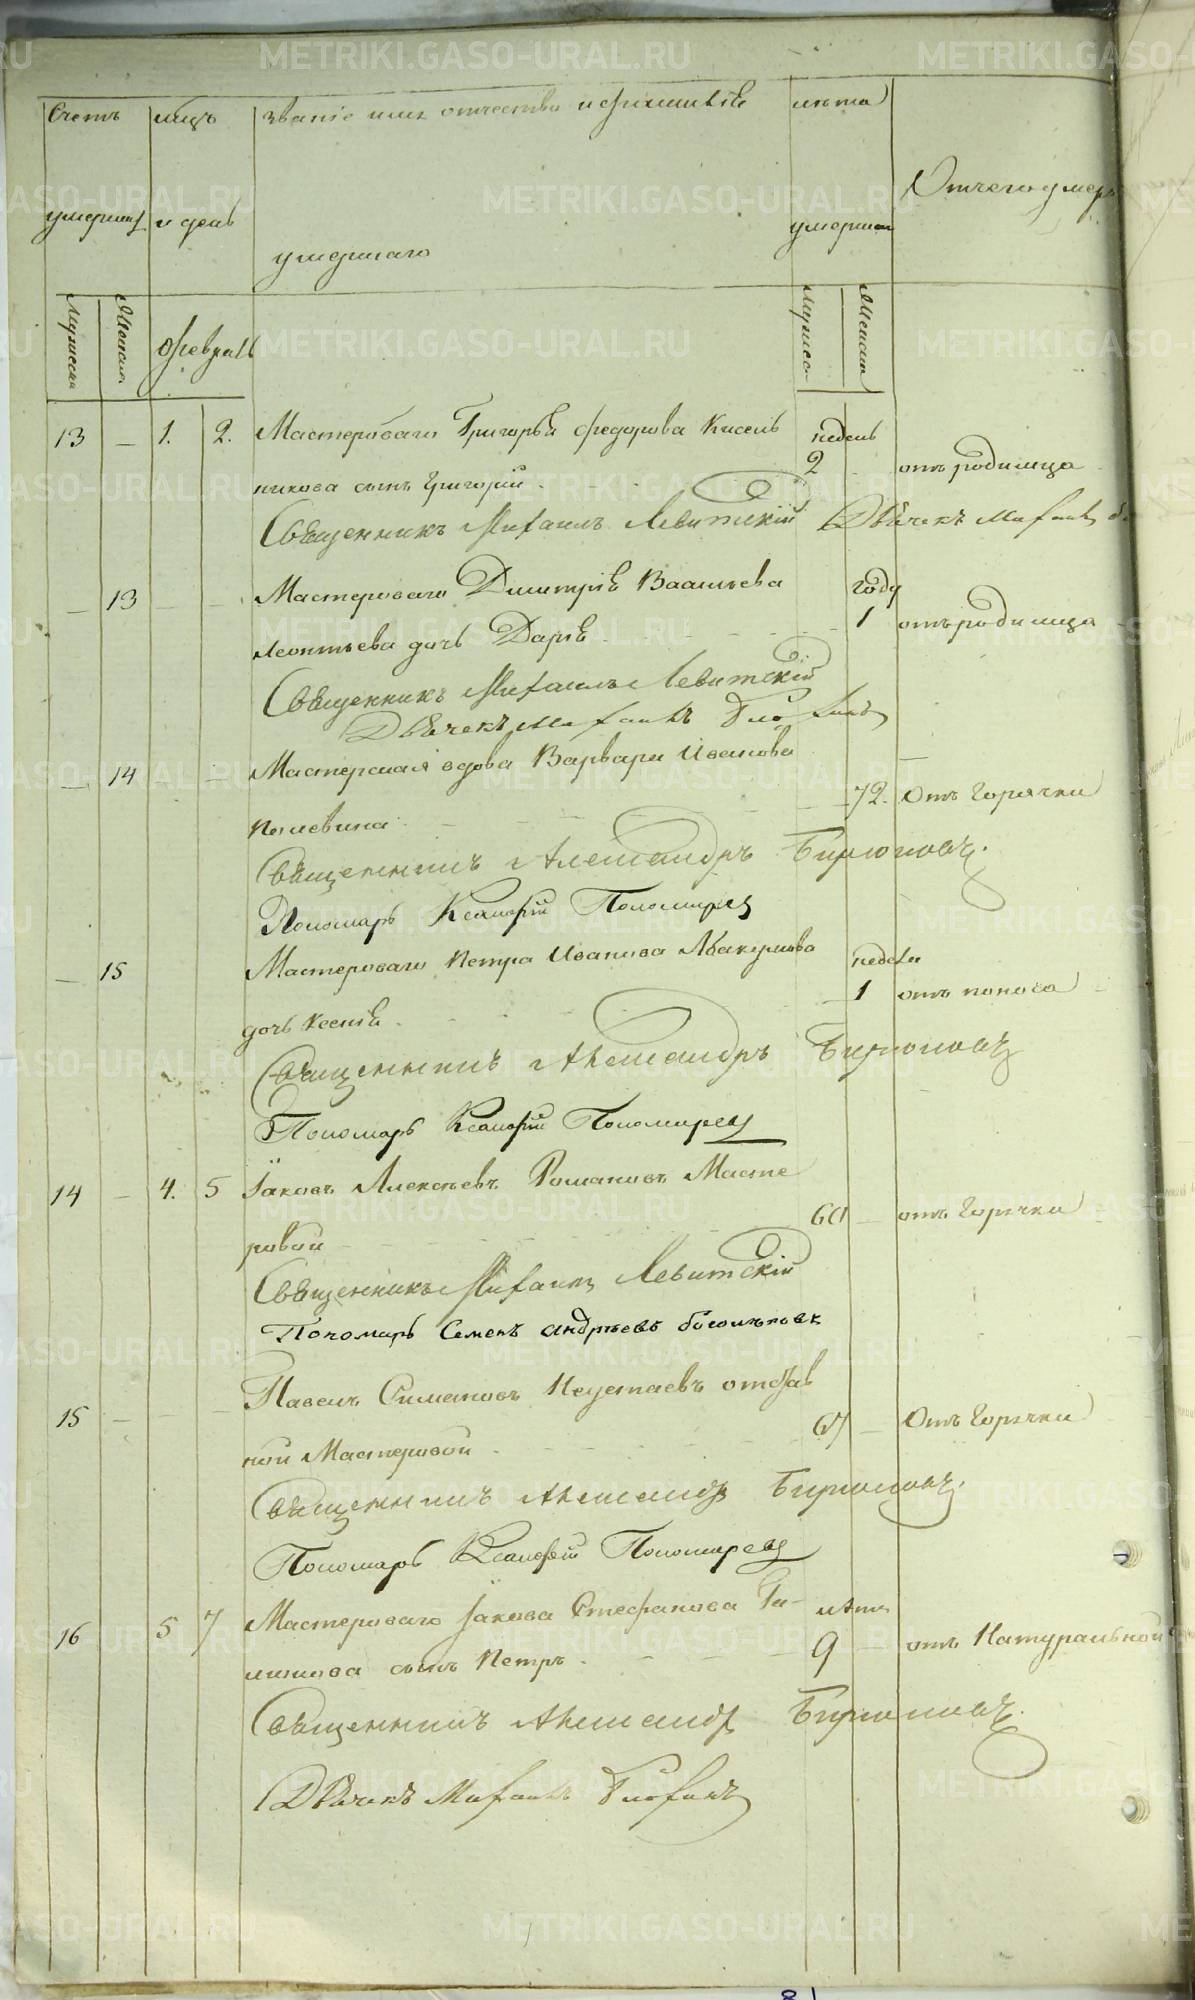 Счетъ мцъ званіе имя отчество и фамиліе лѣта
Отчего умеръ
умершихъ и день умершаго умершаго
Мужеска Женска февраль Мужеска Женска
13 — 1. 2. Мастероваго Григорья федорова Кисель недель
никова сынъ Григорій 2 отъ родимца
Священникъ Михаилъ Левитскій Дьячекъ
— 13 Мастероваго Дмитрія Васильева году
Леонтьева дочь Дарья 1 отъ родимца
Священникъ Михаилъ Левитскій
Дьячекъ
— 14 Мастерская вдова Варвара Иванова
72. Отъ Горячки
Священникъ Александръ Бирюковъ.
Пономарь Ксенофонтъ Пономаревъ
— 15 Мастероваго Петра Иванова Абакумова недели
дочь Ксенія 1 отъ поноса
Священникъ Александръ Бирюковъ
Пономарь Ксенофонтъ Пономаревъ
14 — 4. 5 Іаковъ Алексѣевъ Романовъ Масте
ровой 60 — отъ Горячки
Священникъ Михаилъ Левитскій
Пономарь Семенъ Андрѣевъ
15 — Павелъ Симановъ отстав
ной Мастеровой 67 — Отъ Горячки
Священникъ Александръ Бирюковъ.
Пономарь Ксенофонтъ Пономаревъ
16 5 7 Мастероваго Іакова Стефанова Га- лѣтъ
сынъ Петръ 9 — отъ Натуральной
Священникъ Александръ Бирюковъ.
Дьячекъ
81
METRIKI.GASO-URAL.RU